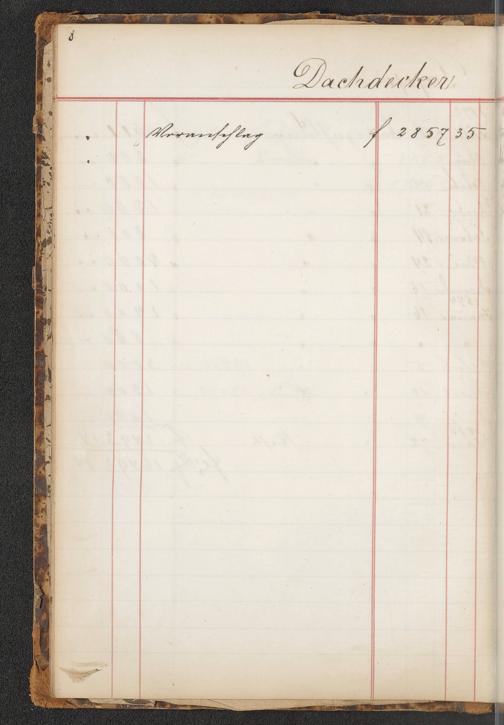 8
Dachdecker
Voranschlag f 2857 35